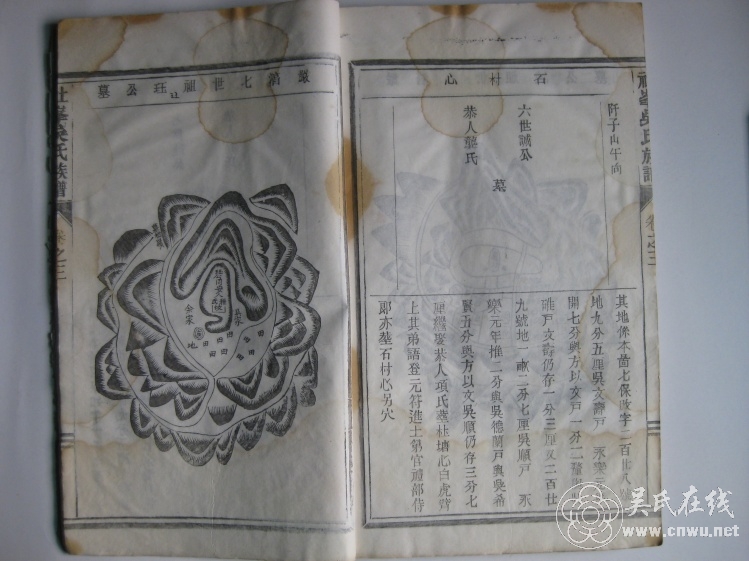 石村心
阡子山午向
六世誠公
恭人龔氏
墓
其地係本啚七保
地九分五厘吳文壽戶
開七分與方以文戶一分二釐
碓戶文壽仍存一分三厘又二百廿
九號地一畝二分七厘吳順戶 永
樂元年推二分與吳德蘭戶與吳希
賢五分與方以文吳順仍存三分七
厘繼娶恭人項氏葬杜塘心白虎
上其弟語登元符進士第官禮部侍
郎亦葬石村心另穴
七世祖珏公墓
余家
地
田
田
田
田
田
田
吳氏族譜
卷之三
吳氏族譜
卷之三
吴氏在线
www.cnwu.net